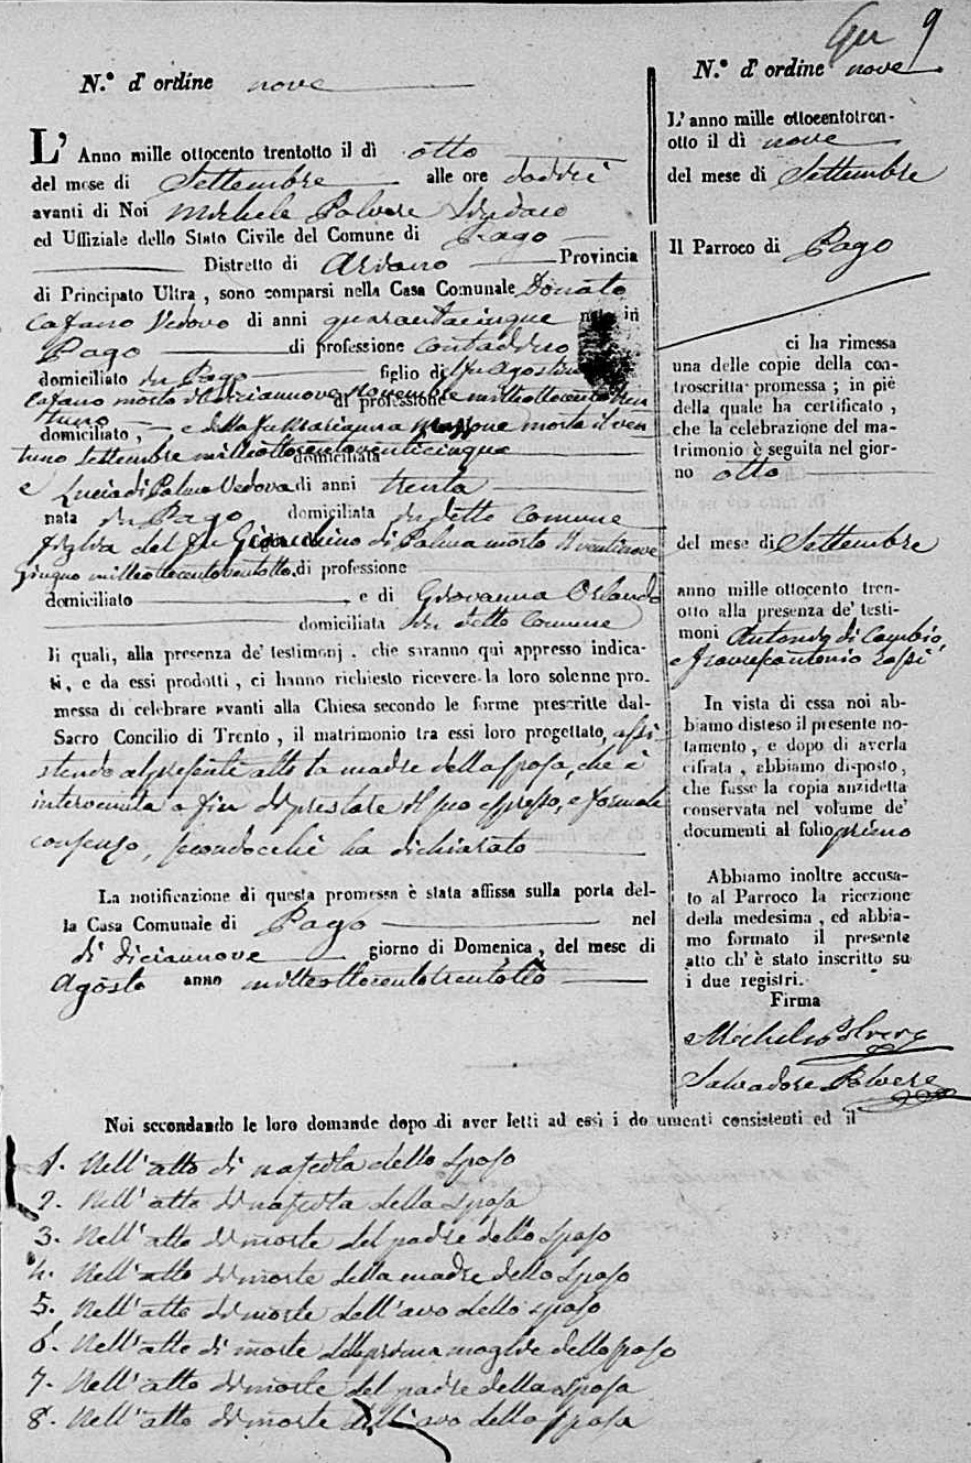 N.° d' ordine nove
L' Anno mille ottocento trentotto il dì otto
del mese di Settembre alle ore dodeci
avanti di Noi Michele Polvere Sindaco
ed Uffiziale dello Stato Civile del Comune di Pago
Distretto di Ariano Provincia
di Principato Ultra, sono comparsi nella Casa Comunale Donato
Cafano Vedovo di anni quarantacinque nato in
Pago di professione contadino
domiciliato in Pago figlio di fu Agostino
Cafano morto il diciannove Novembre milleottocentotren
di professione
tuno e della fu Marianna Mazzone morta il ven
domiciliato,
tuno Settembre milleottocentoventicinque
domiciliata
e Lucia di Palma Vedova di anni trenta
nata in Pago domiciliata in detto Comune
figlia del fu Gioacchino di Palma morto il ventinove
Giugno milleottocentoventotto, di professione
domiciliato e di Giovanna Orlando
domiciliata in detto Comune
Ii quali, alla presenza de' testimonj. che saranno qui appresso indica-
ti, e da essi prodotti, ci hanno richiesto ricevere la loro solenne pro-
messa di celebrare avanti alla Chiesa secondo le forme prescritte dal-
Sacro Concilio di Trento, il matrimonio tra essi loro progettato, assi-
stendo al presente atto la madre della sposa, che è
intervenuta a fin di prestare il suo espresso, e formale
consenso, secondocchè ha dichiarato
La notificazione di questa promessa è stata affissa sulla porta del-
la Casa Comunale di Pago nel
dì diciannove giorno di Domenica, del mese di
Agosto anno milleottocentotrentotto
9
N.° d' ordine nove
L' anno mille ottocentotren-
otto il dì nove
del mese di Settembre
Il Parroco di Pago
ci ha rimessa
una delle copie della con-
troscritta promessa; in piè
della quale ha certificato,
che la celebrazione del ma-
trimonio è seguita nel gior-
no otto
del mese di Settembre
anno mille ottocento tren-
otto alla presenza de' testi-
moni Antonio di Cambio,
e Francescantonio Rossi
In vista di essa noi ab-
biamo disteso il presente no-
tamento, e dopo di averla
cifrata, abbiamo disposto,
che fusse la copia anzidetta
conservata nel volume de'
documenti al folio primo
Abbiamo inoltre accusa-
to al Parroco la ricezione
della medesima, ed abbia-
mo formato il presente
atto ch' è stato inscritto su
i due registri.
Firma
Michele Polvere
Salvadore Polvere
Noi secondando le loro domande dopo di aver letti ad essi i do umenti consistenti ed il
1. Nell'atto di nascita dello sposo
2. Nell'atto di nascita della sposa
3. Nell'atto di morte del padre dello sposo
4. Nell'atto di morte della madre dello sposo
5. Nell'atto di morte dell'avo dello sposo
6. Nell'atto di morte della prima moglie dello sposo
7. Nell'atto di morte del padre della sposa
8. Nell'atto di morte dell'avo della sposa